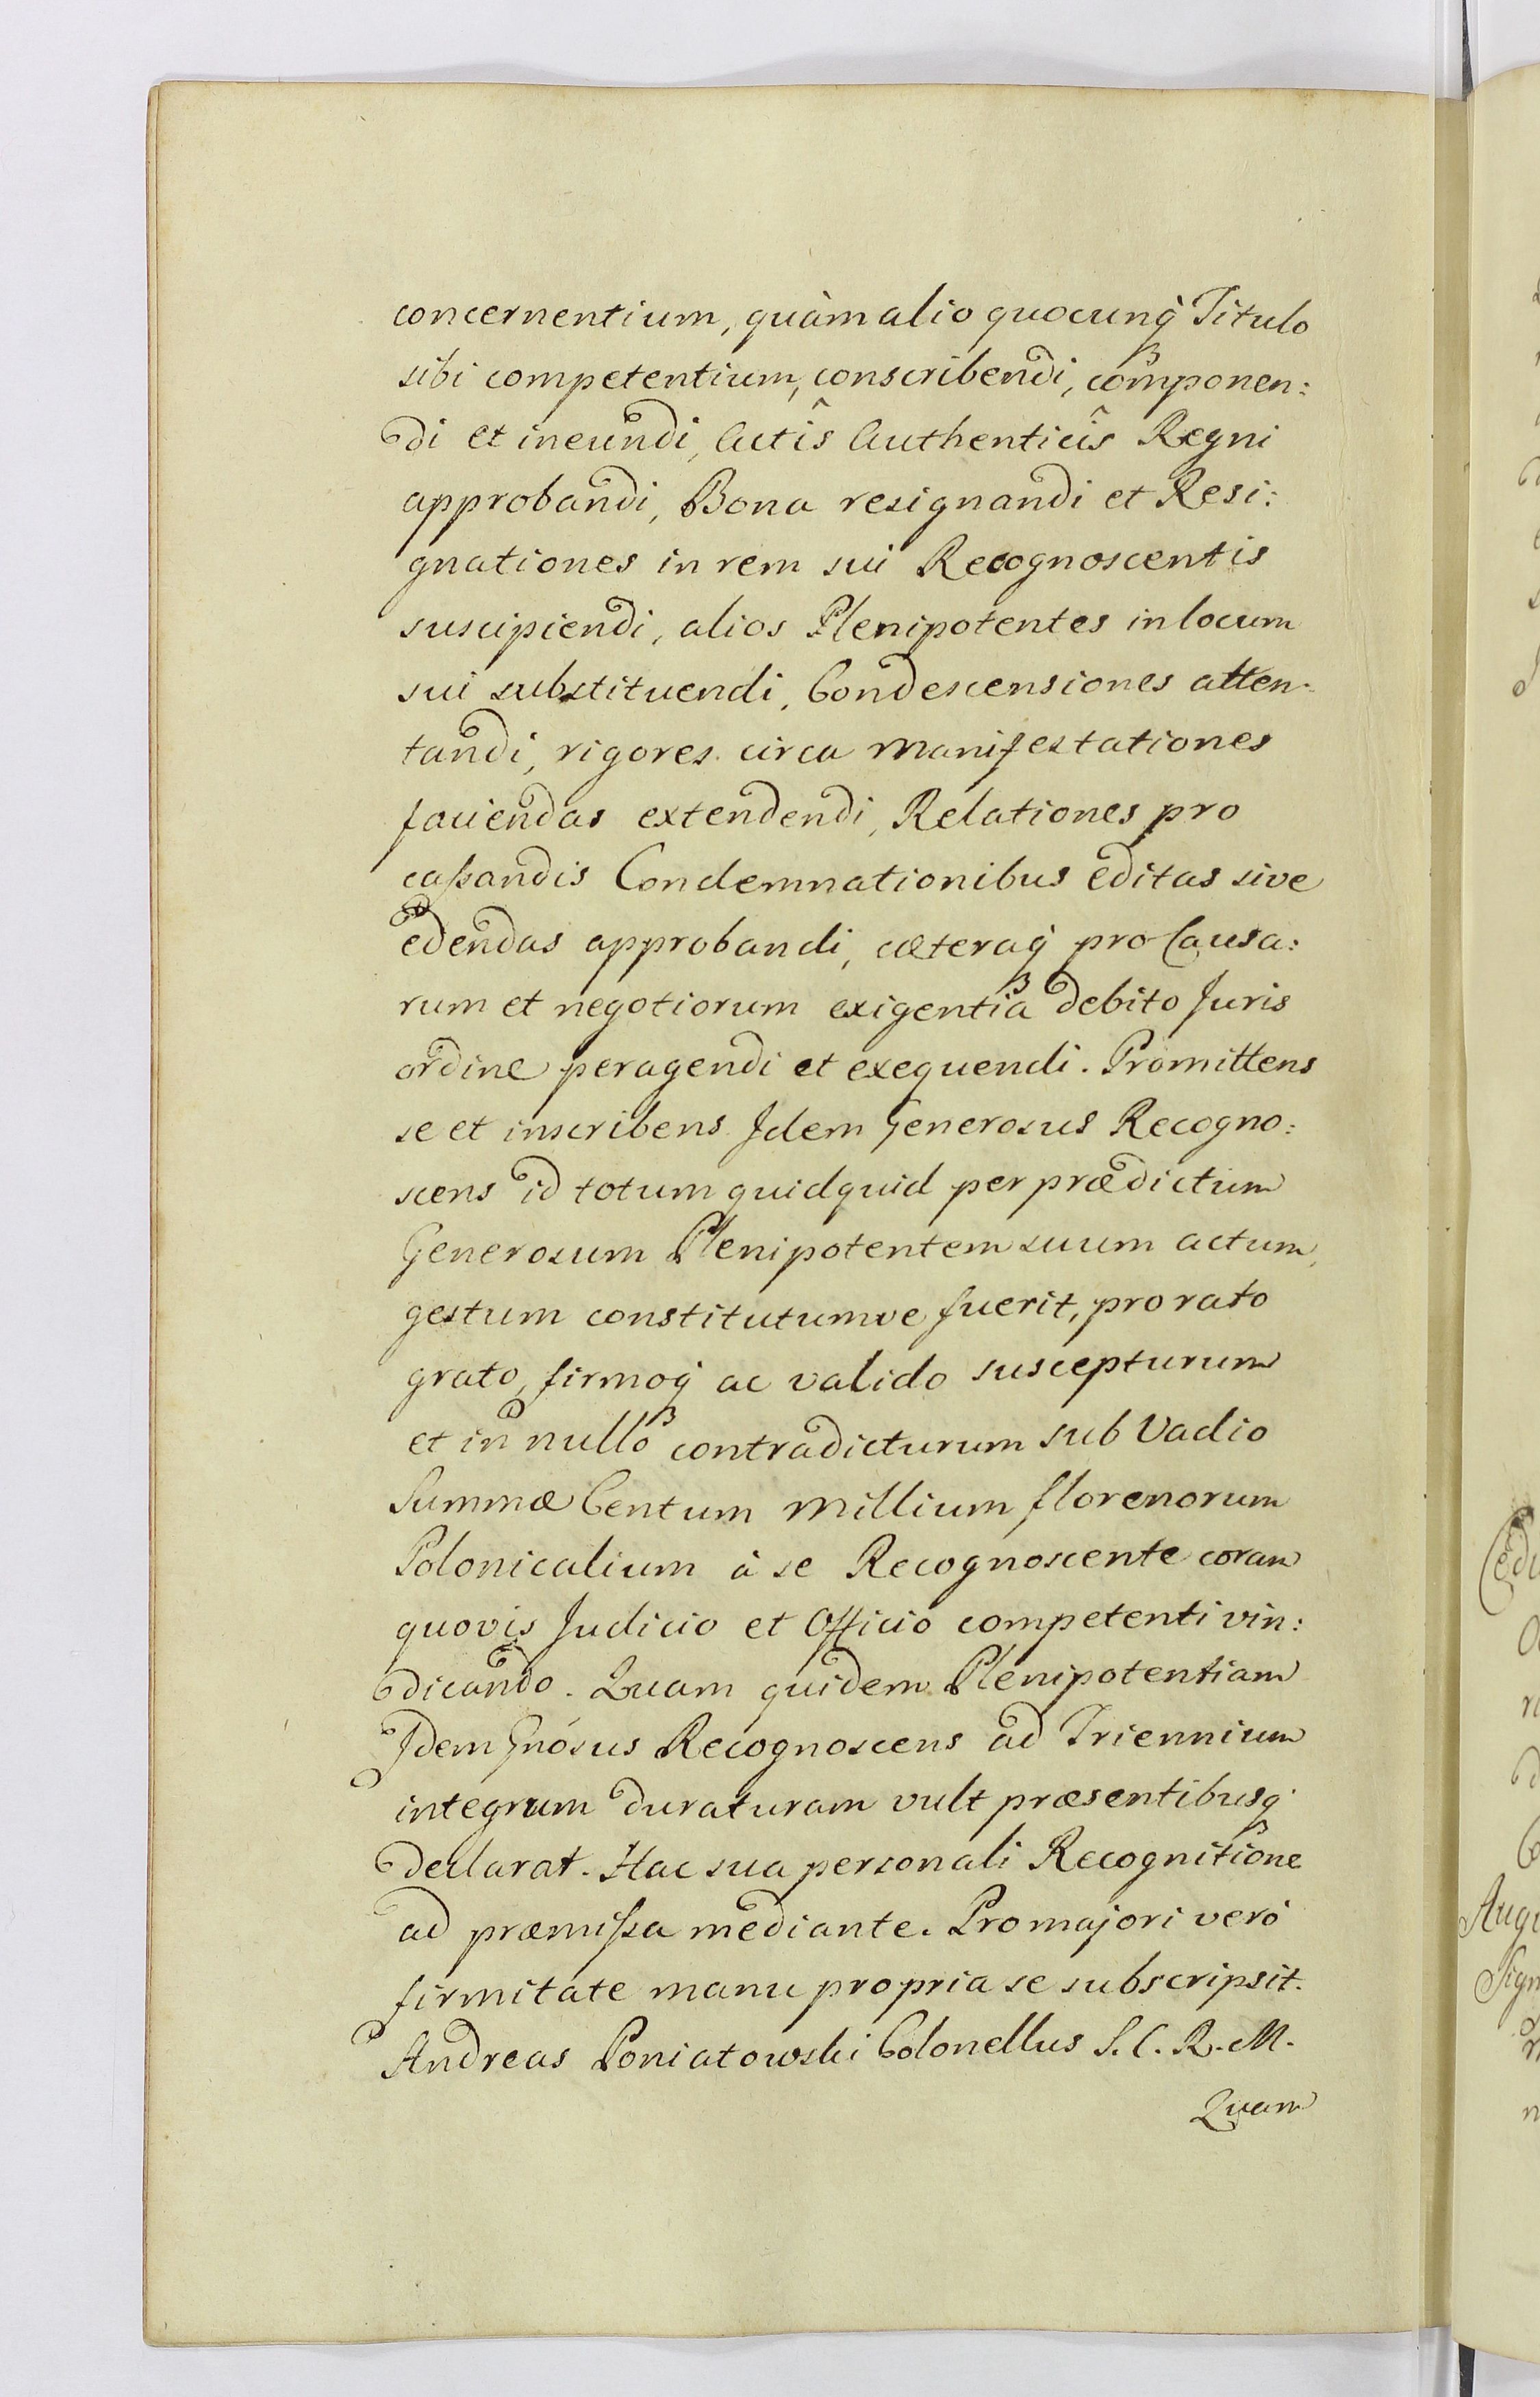 concernentium, quàm alio quocunq̀ Titulo
sibi competentium, conscribendi, componen:
di et ineundi, Actîs Authenticîs Regni
approbandi, Bona resignandi et Resi:
gnationes in rem sui Recognoscentis
suscipiendi, alios Plenipotentes in locum
sui substituendi, Condescensiones atten:
tandi, rigores circa Manifestationes
faciendas extendendi, Relationes pro
caſsandis Condemnationibus editas sive
edendas approbandi, cæteraq̀ pro Causa:
rum et negotiorum exigentia debito Juris
ordine peragendi et exequendi. Promittens
se et inscribens Idem Generosus Recogno:
scens id totum quidquid per prædictum
Generosum Plenipotentem suum actum,
gestum constitutumve fuerit, pro rato
grato, firmoq̀ ac valido suscepturum
et in nullo contradicturum sub Vadio
Summæ Centum Millium florenorum
Polonicalium à se Recognoscente coram
quovis Judicio et Officio competenti vin:
dicando. Quam quidem Plenipotentiam
Idem Gnósus Recognoscens ad Triennium
integrum duraturam vult præsentibusq̀
declarat. Hac sua personali Recognitione
ad præmiſsa mediante. Pro majori verò
firmitate manu propria se subscripsit.
Andreas Poniatowski Colonellus S. C. R. M.
Quam